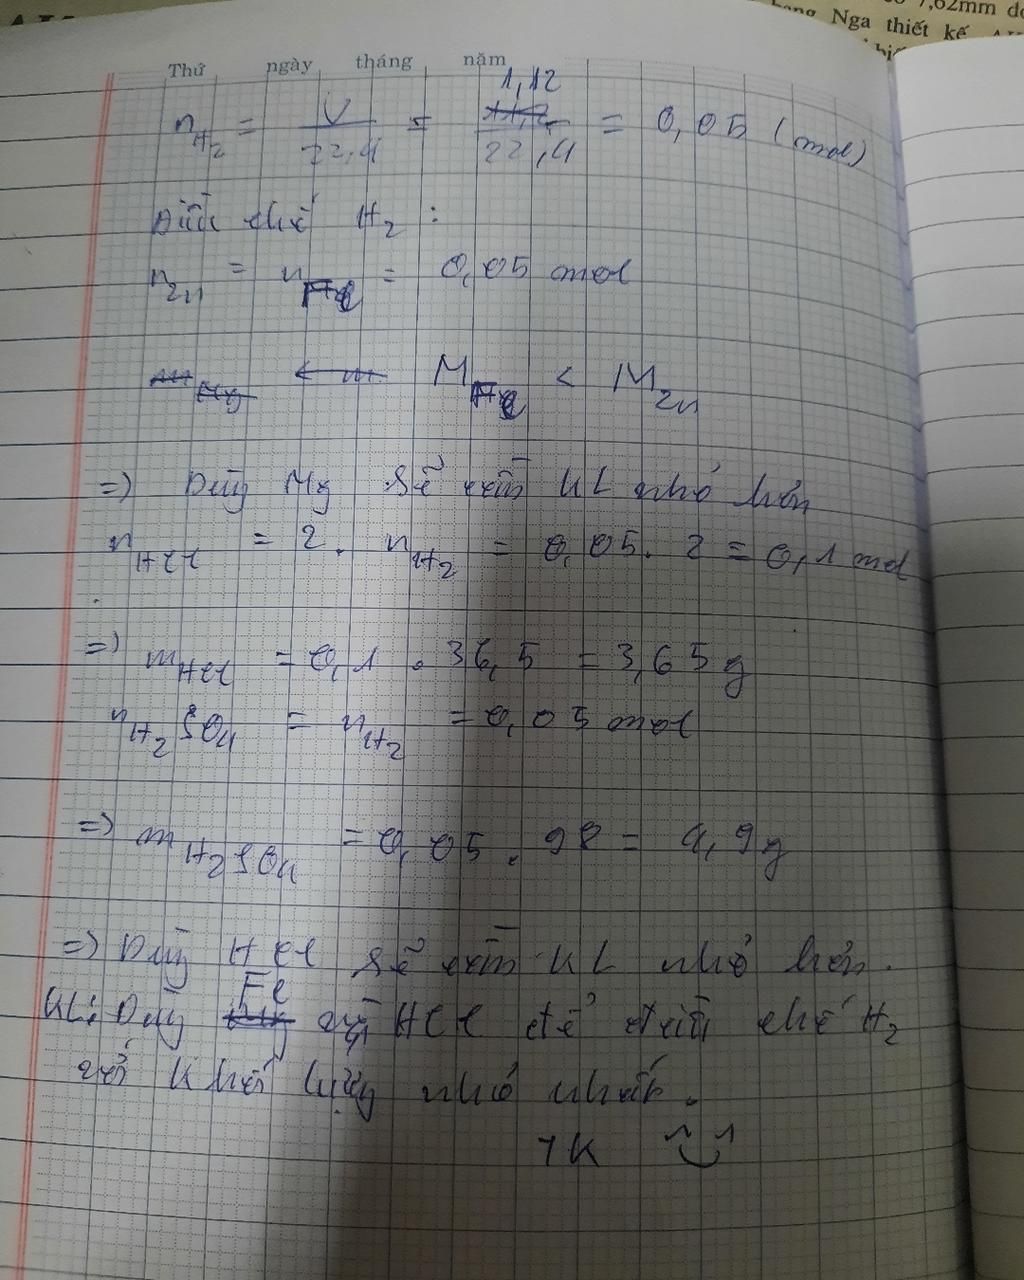 7,62mm
Nga thiết kế
Thứ ngày tháng năm
n_H2 = V/22,4 = 1,12/22,4 = 0,05 (mol)
Điều chế H2 :
n_Zn = n_Fe = 0,05 mol
M_Fe < M_Zn
=> Dùng Mg sẽ cần KL nhỏ hơn
n_HCl = 2 . n_H2 = 0,05 . 2 = 0,1 mol
=> m_HCl = 0,1 . 36,5 = 3,65 g
n_H2SO4 = n_H2 = 0,05 mol
=> m_H2SO4 = 0,05 . 98 = 4,9 g
=> Dùng HCl sẽ cần KL nhỏ hơn.
KL: Dùng Fe và HCl để điều chế H2
với khối lượng nhỏ nhất.